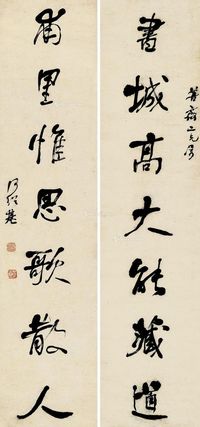 書城高大能藏道
甫里惟思歌散人
何紹基